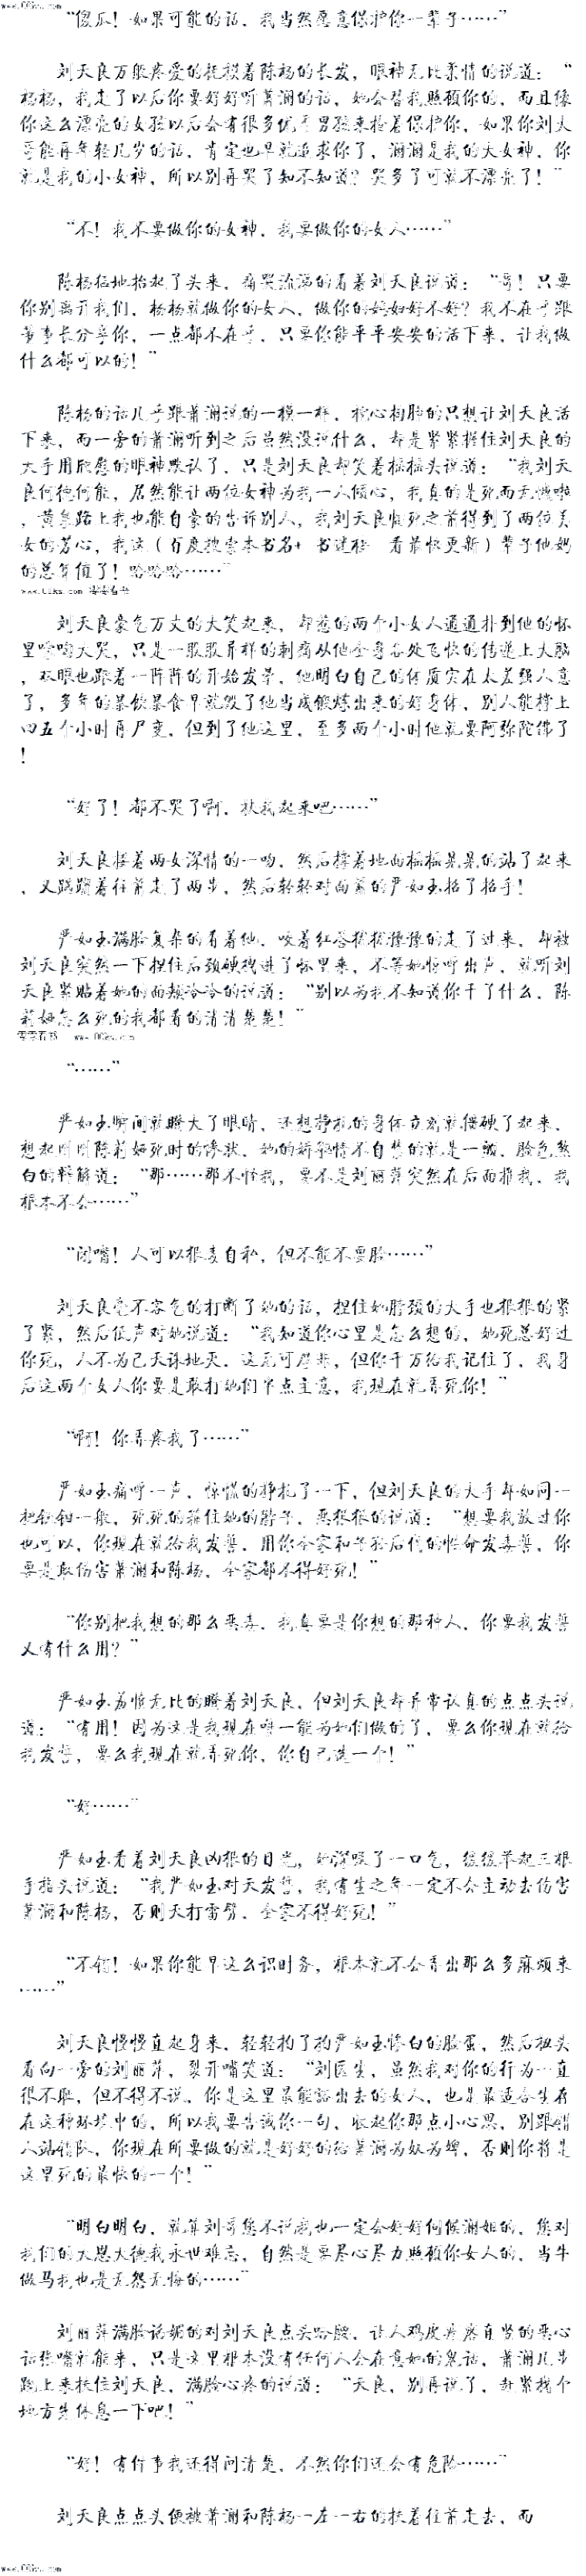 www.00ks.com
“傻瓜！如果可能的话，我当然愿意保护你一辈子……”
刘天良万般疼爱的抚摸着陈杨的长发，眼神无比柔情的说道：“
杨杨，我走了以后你要好好听萧澜的话，她会替我照顾你的，而且像
你这么漂亮的女孩以后会有很多优秀男孩来抢着保护你，如果你刘大
哥能再年轻几岁的话，肯定也早就追求你了，澜澜是我的大女神，你
就是我的小女神，所以别再哭了知不知道？哭多了可就不漂亮了！”
“不！我不要做你的女神，我要做你的女人……”
陈杨猛地抬起了头来，痛哭流涕的看着刘天良说道：“哥！只要
你别离开我们，杨杨就做你的女人，做你的媳妇好不好？我不在乎跟
董事长分享你，一点都不在乎，只要你能平平安安的活下来，让我做
什么都可以的！”
陈杨的话几乎跟萧澜说的一模一样，掏心掏肺的只想让刘天良活
下来，而一旁的萧澜听到之后虽然没说什么，却是紧紧握住刘天良的
大手用欣慰的眼神默认了，只是刘天良却笑着摇摇头说道：“我刘天
良何德何能，居然能让两位女神为我一人倾心，我真的是死而无憾啦
，黄泉路上我也能自豪的告诉别人，我刘天良临死之前得到了两位美
女的芳心，我这（百度搜索本书名+ 书谜楼 看最快更新）辈子他妈
的总算值了！哈哈哈……”
www.00ks.com 零零看书
刘天良豪气万丈的大笑起来，却惹的两个小女人通通扑到他的怀
里嚎啕大哭，只是一股股异样的刺痛从他全身各处飞快的传递上大脑
，双眼也跟着一阵阵的开始发晕，他明白自己的体质实在太差强人意
了，多年的暴饮暴食早就毁了他当成锻炼出来的好身体，别人能撑上
四五个小时再尸变，但到了他这里，至多两个小时他就要阿弥陀佛了
！
“好了！都不哭了啊，扶我起来吧……”
刘天良搂着两女深情的一吻，然后撑着地面摇摇晃晃的站了起来
，又蹒跚着往前走了两步，然后轻轻对面前的严如玉招了招手！
严如玉满脸复杂的看着他，咬着红唇犹犹豫豫的走了过来，却被
刘天良突然一下捏住后颈硬拽进了怀里来，不等她惊呼出声，就听刘
天良紧贴着她的面颊冷冷的说道：“别以为我不知道你干了什么，陈
莉娅怎么死的我都看的清清楚楚！”
零零看书 www.00ks.com
“……”
严如玉瞬间就瞪大了眼睛，还想挣扎的身体立刻就僵硬了起来，
想起刚刚陈莉娅死时的惨状，她的娇躯情不自禁的就是一颤，脸色煞
白的辩解道：“那……那不怪我，要不是刘丽萍突然在后面推我，我
根本不会……”
“闭嘴！人可以狠毒自私，但不能不要脸……”
刘天良毫不客气的打断了她的话，捏住她脖颈的大手也狠狠的紧
了紧，然后低声对她说道：“我知道你心里是怎么想的，她死总好过
你死，人不为己天诛地灭，这无可厚非，但你千万给我记住了，我身
后这两个女人你要是敢打她们半点主意，我现在就弄死你！”
“啊！你弄疼我了……”
严如玉痛呼一声，惊慌的挣扎了一下，但刘天良的大手却如同一
把铁钳一般，死死的箍住她的脖子，恶狠狠的说道：“想要我放过你
也可以，你现在就给我发誓，用你全家和子孙后代的性命发毒誓，你
要是敢伤害萧澜和陈杨，全家都不得好死！”
“你别把我想的那么恶毒，我真要是你想的那种人，你要我发誓
又有什么用？”
严如玉羞愤无比的瞪着刘天良，但刘天良却异常认真的点点头说
道：“有用！因为这是我现在唯一能为她们做的了，要么你现在就给
我发誓，要么我现在就弄死你，你自己选一个！”
“好……”
严如玉看着刘天良凶狠的目光，她深吸了一口气，缓缓举起三根
手指头说道：“我严如玉对天发誓，我有生之年一定不会主动去伤害
萧澜和陈杨，否则天打雷劈，全家不得好死！”
“不错！如果你能早这么识时务，根本就不会弄出那么多麻烦来
……”
刘天良慢慢直起身来，轻轻拍了拍严如玉惨白的脸蛋，然后扭头
看向一旁的刘丽萍，裂开嘴笑道：“刘医生，虽然我对你的行为一直
很不耻，但不得不说，你是这里最能豁出去的女人，也是最适合生存
在这种环境中的，所以我要告诫你一句，收起你那点小心思，别跟错
人站错队，你现在所要做的就是好好的给萧澜为奴为婢，否则你将是
这里死的最快的一个！”
“明白明白，就算刘哥您不说我也一定会好好伺候澜姐的，您对
我们的大恩大德我永世难忘，自然是要尽心尽力照顾你女人的，当牛
做马我也是无怨无悔的……”
刘丽萍满脸谄媚的对刘天良点头哈腰，让人鸡皮疙瘩直竖的恶心
话张嘴就能来，只是这里根本没有任何人会在意她的鬼话，萧澜几步
跑上来扶住刘天良，满脸心疼的说道：“天良，别再说了，赶紧找个
地方先休息一下吧！”
“好！有件事我还得问清楚，不然你们还会有危险……”
刘天良点点头便被萧澜和陈杨一左一右的扶着往前走去，而
www.00ks.com